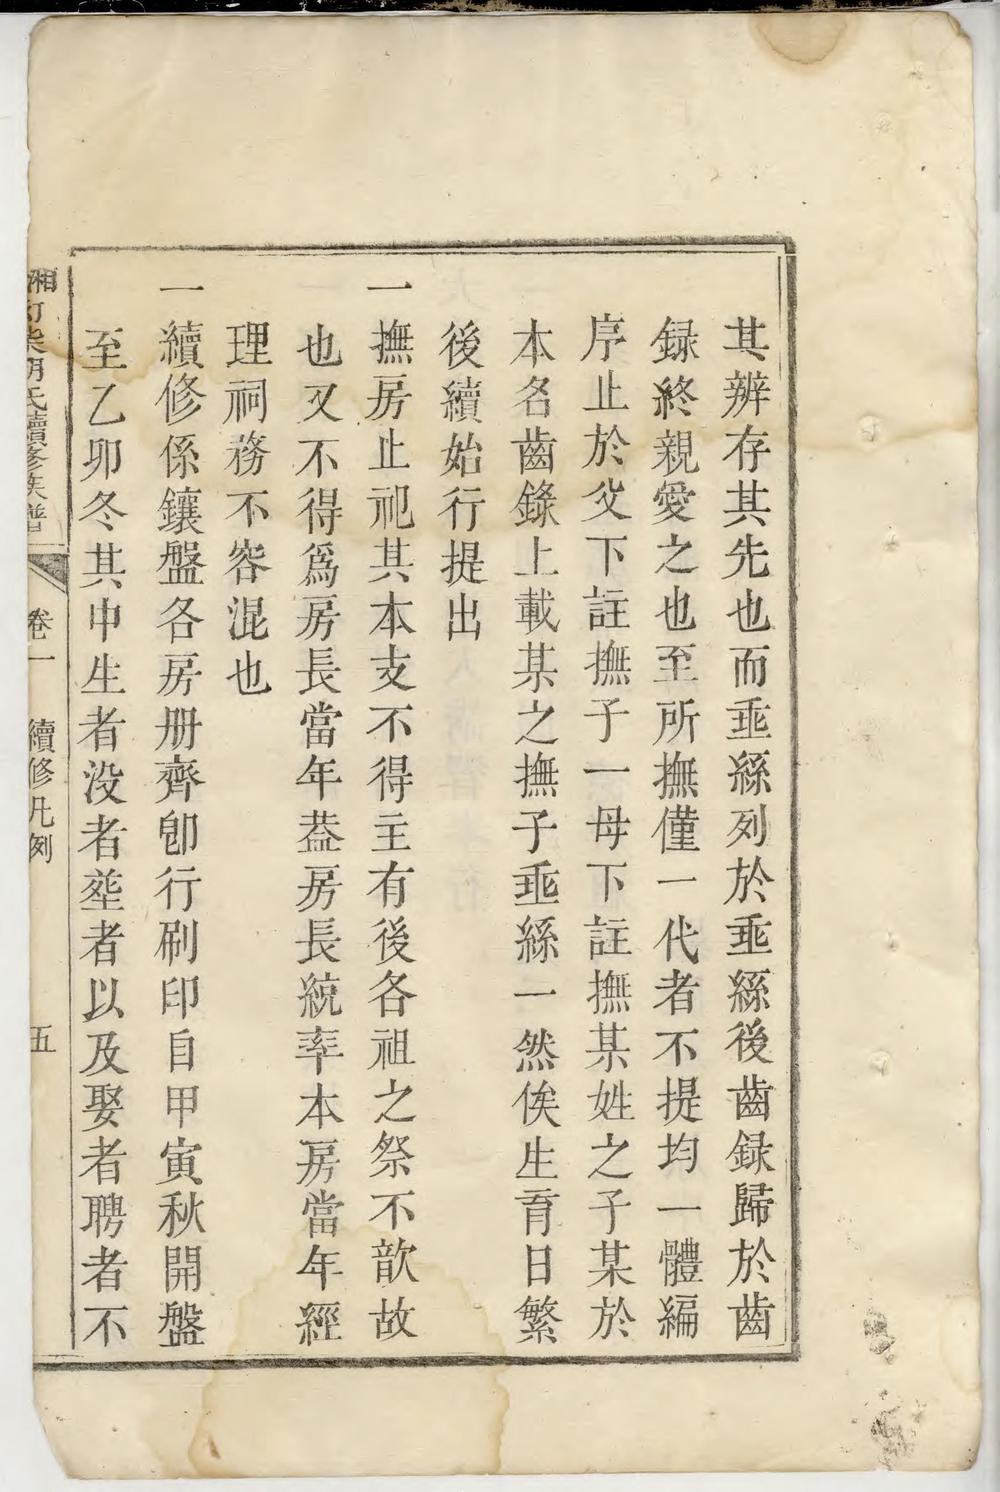 其辨存其先也而垂絲列於垂絲後齒録歸於齒
録終親愛之也至所撫僅一代者不提均一體編
序止於父下註撫子一母下註撫某姓之子某於
本名齒錄上載某之撫子垂絲一然俟生育日繁
後續始行提出
一撫房止祀其本支不得主有後各祖之祭不歆故
也又不得爲房長當年葢房長統率本房當年經
理祠務不容混也
一續修係鑲盤各房册齊卽行刷印自甲寅秋開盤
至乙卯冬其中生者没者塟者以及娶者聘者不
湘 氏續修族譜 卷一 續修凡例 五